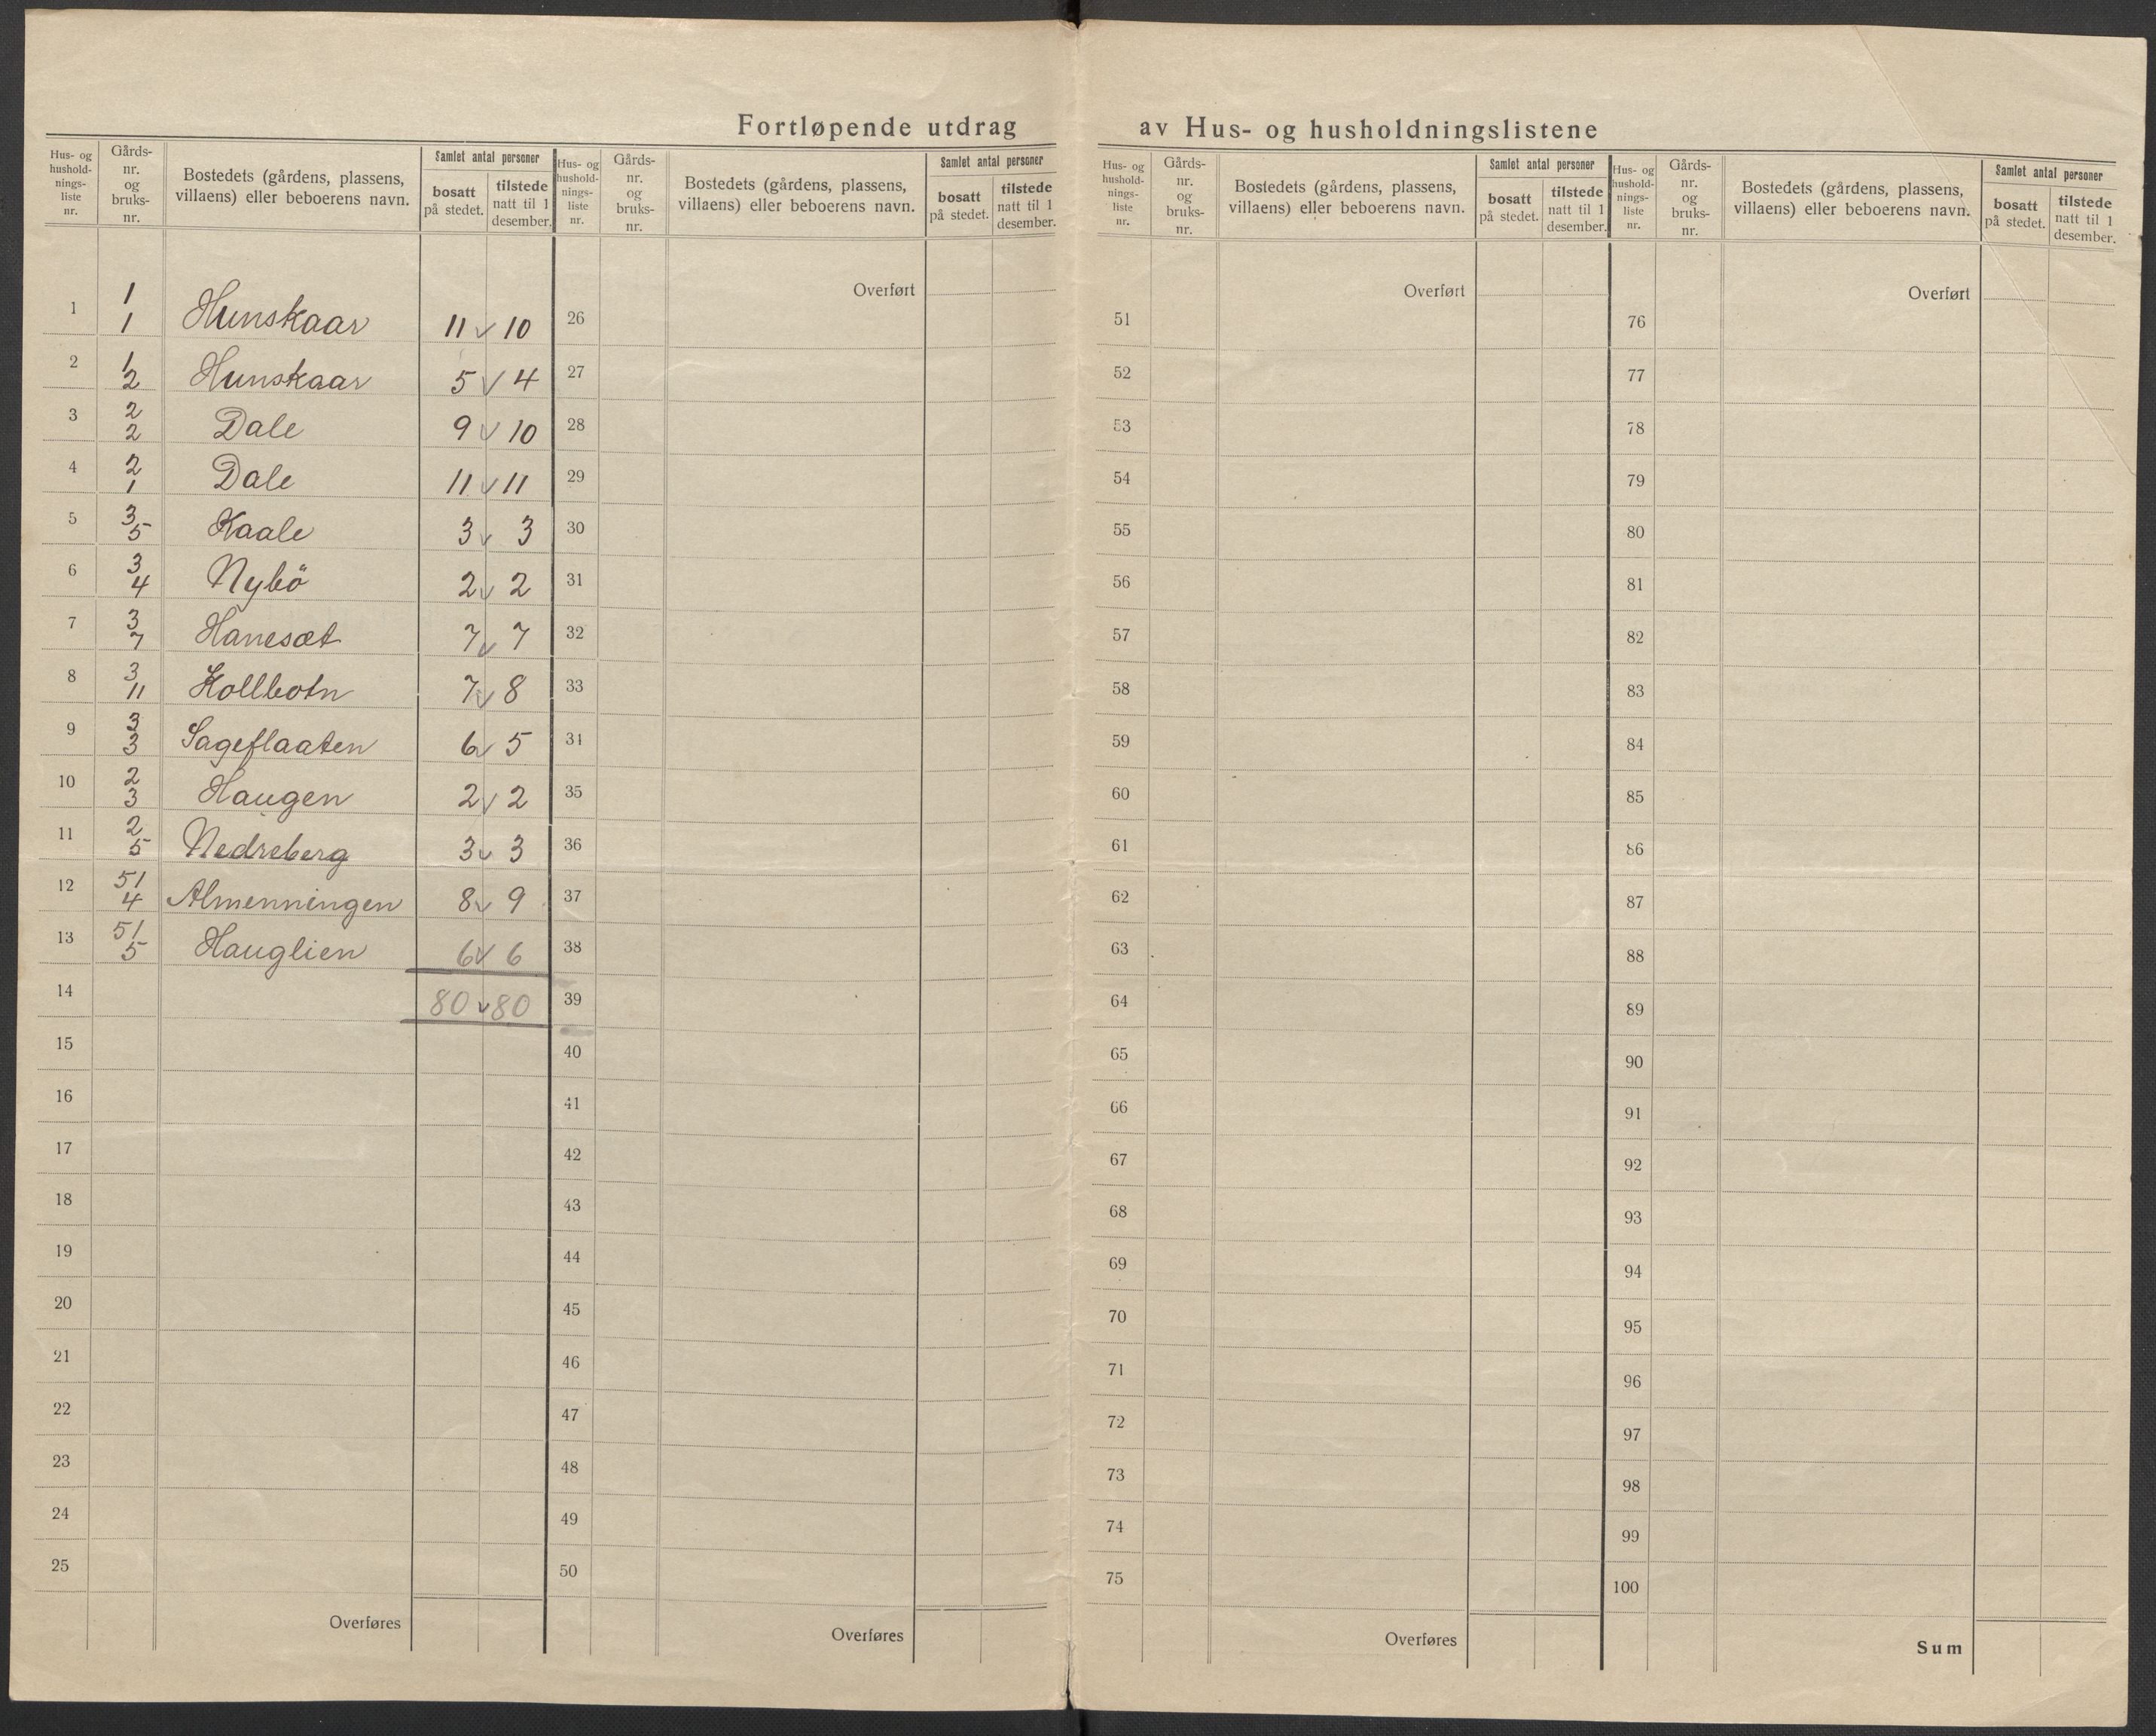 Fortløpende utdrag av Hus- og husholdningslistene
Hus- og hushold-nings-liste nr. | Gårds-nr. og bruks-nr. | Bostedets (gårdens, plassens, villaens) eller beboerens navn. | Samlet antal personer | bosatt på stedet. | tilstede natt til 1 desember.
1 | 1 1 | Hunskaar | 11 v 10
2 | 1 2 | Hunskaar | 5 v 4
3 | 2 2 | Dale | 9 v 10
4 | 2 1 | Dale | 11 v 11
5 | 3 5 | Kaale | 3 v 3
6 | 3 4 | Nybö | 2 v 2
7 | 3 7 | Hanesæt | 7 v 7
8 | 3 11 | Kollbotn | 7 v 8
9 | 3 3 | Sageflaaten | 6 v 5
10 | 2 3 | Haugen | 2 v 2
11 | 2 5 | Nedreberg | 3 v 3
12 | 51 4 | Almenningen | 8 v 9
13 | 51 5 | Hauglien | 6 v 6
14 | 80 v 80
15
16
17
18
19
20
21
22
23
24
25
Overføres
Hus- og hushold-nings-liste nr. | Gårds-nr. og bruks-nr. | Bostedets (gårdens, plassens, villaens) eller beboerens navn. | Samlet antal personer | bosatt på stedet. | tilstede natt til 1 desember.
Overført
26
27
28
29
30
31
32
33
31
35
36
37
38
39
40
41
42
43
44
45
46
47
48
49
50
Overføres
Hus- og hushold-nings-liste nr. | Gårds-nr. og bruks-nr. | Bostedets (gårdens, plassens, villaens) eller beboerens navn. | Samlet antal personer | bosatt på stedet. | tilstede natt til 1 desember.
Overført
51
52
53
54
55
56
57
58
59
60
61
62
63
64
65
66
67
68
69
70
71
72
73
74
75
Overføres
Hus- og hushold-nings-liste nr. | Gårds-nr. og bruks-nr. | Bostedets (gårdens, plassens, villaens) eller beboerens navn. | Samlet antal personer | bosatt på stedet. | tilstede natt til 1 desember.
Overført
76
77
78
79
80
81
82
83
84
85
86
87
88
89
90
91
92
93
94
95
96
97
98
99
100
Sum